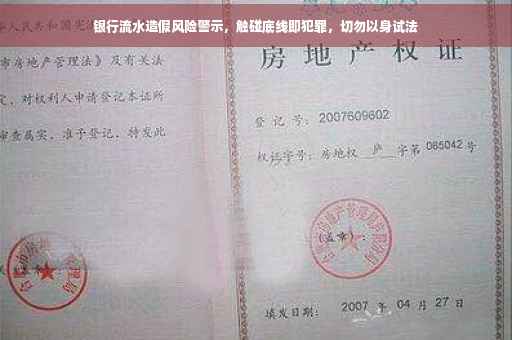 银行流水造假风险警示，触碰底线即犯罪，切勿以身试法
人民共和国宪
市房地产管理法》及有关法
定，对权利人申请登记本证所
审查属实，准予登记，特发此
房地产权证
登记号：2007609602
权证字号：房地权 庐 字第 065042 号
（盖章）：
填发日期： 2007 年 04 月 27 日